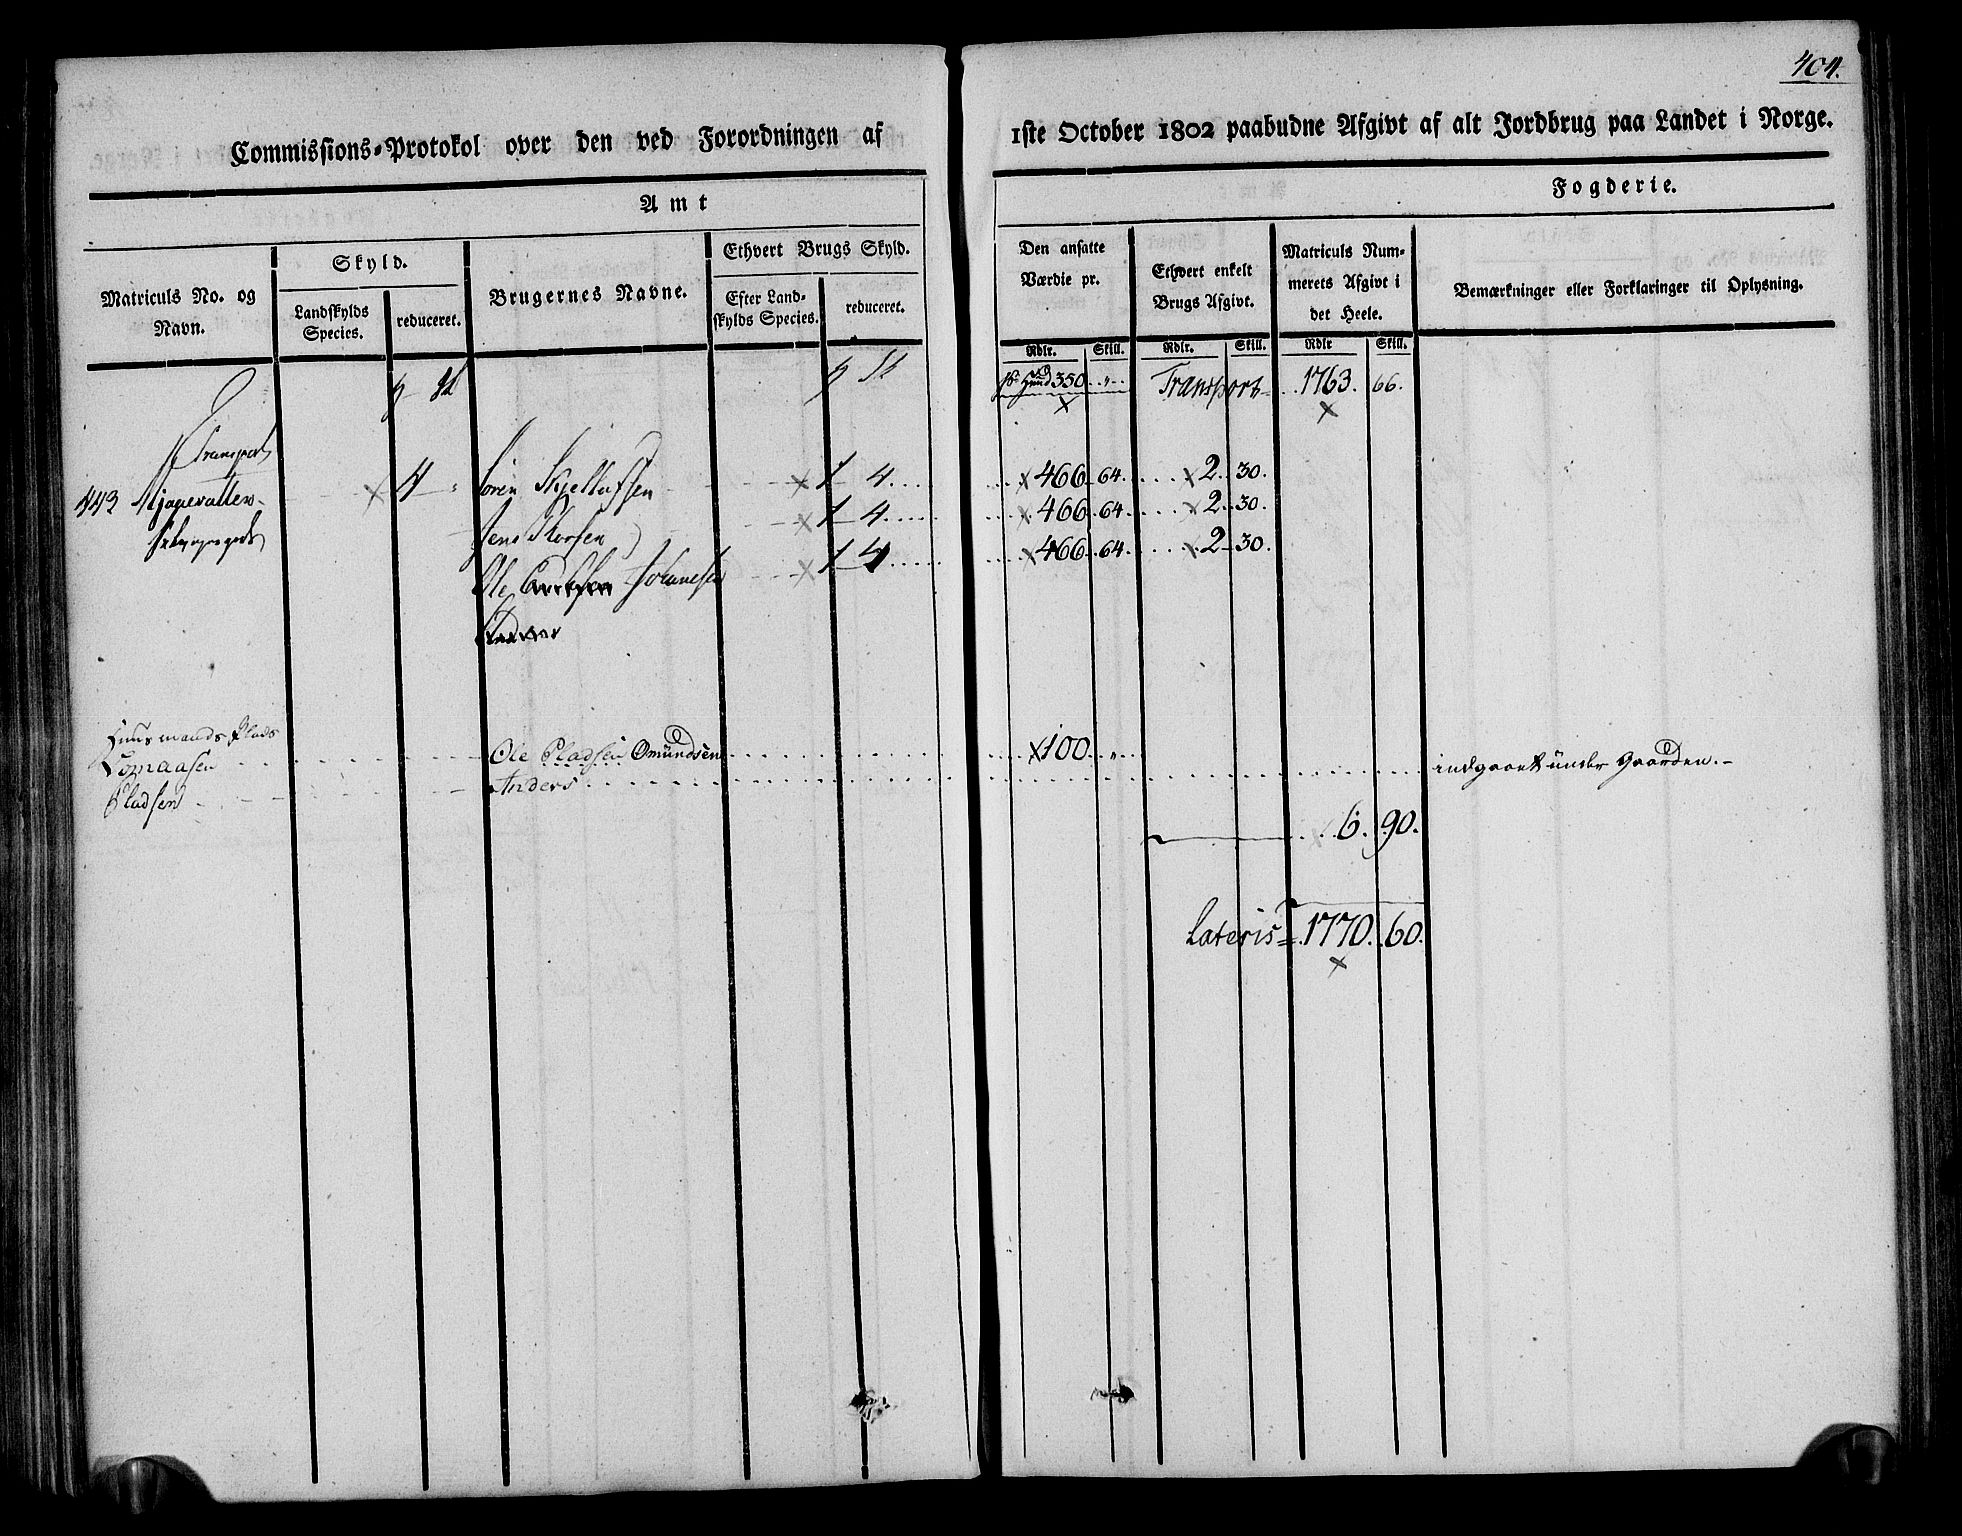 404.
Commissions-Protokol over den ved Forordningen af 1ste October 1802 paabudne Afgivt af alt Jordbrug paa Landet i Norge.
Amt Fogderie.
Matriculs No. og Navn.
Skyld.
Landskylds Species.
reduceret.
Brugernes Navne.
Ethvert Brugs Skyld.
Efter Landskylds Species.
reduceret.
Den ansatte Værdie pr.
Ethvert enkelt Brugs Afgivt.
Matriculs Nummerets Afgivt i det Heele.
Bemærkninger eller Forklaringer til Oplysning.
Rdlr. Skill. Rdlr. Skill. Rdlr Skill.
pr Hud 350 Transport 1763. 66.
Transport
443 4 Sören 1 4 466 64 2 30.
Jens 1 4 466 64 2 30.
Ole Johannesen 1 4 466 64 2 30.
Huusmands Plads
Lomaasen Ole Pladsen Omundsen 100
Pladsen Anders indgaaet under Gaarden.
6. 90.
Lateris 1770. 60.